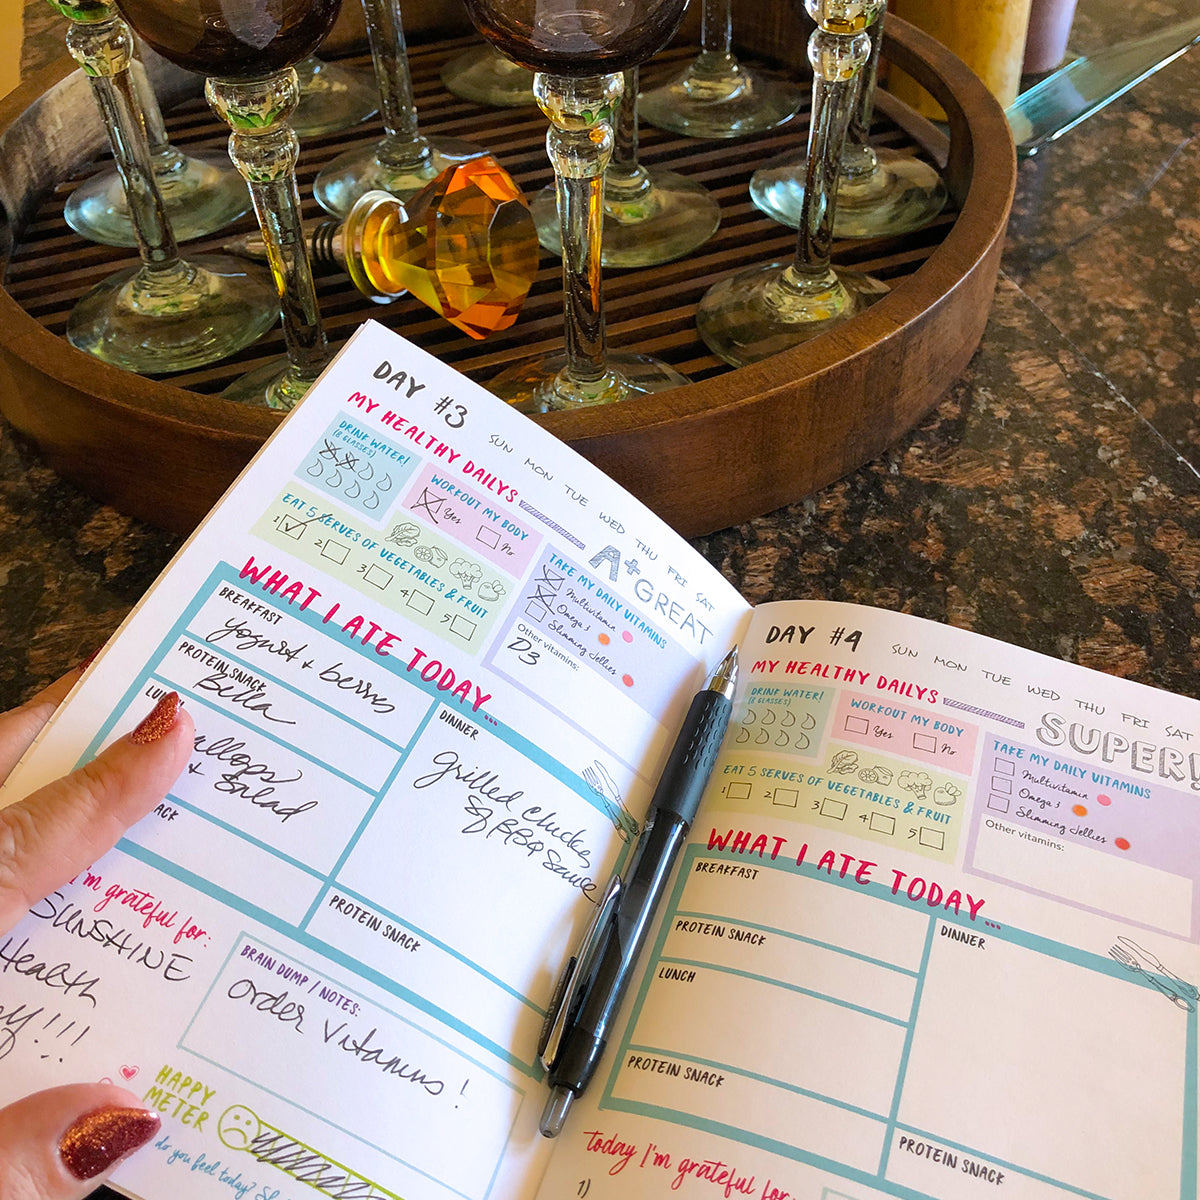 DAY #3
SUN MON TUE WED THU FRI SAT
MY HEALTHY DAILYS
A+
GREAT
DRINK WATER!
(8 GLASSES)
WORKOUT MY BODY
Yes
No
EAT 5 SERVES OF VEGETABLES & FRUIT
1 2 3 4 5
TAKE MY DAILY VITAMINS
Multivitamin
Omega 3
Slimming Jellies
Other vitamins:
D3
WHAT I ATE TODAY...
BREAKFAST
yogurt + berries
PROTEIN SNACK
Bella
LUNCH
& Salad
DINNER
Grilled Chicken
BBQ Sauce
PROTEIN SNACK
I'm grateful for:
SUNSHINE
Health
!!!
BRAIN DUMP / NOTES:
order Vitamins!
HAPPY
METER
do you feel today?
DAY #4
SUN MON TUE WED THU FRI SAT
MY HEALTHY DAILYS
SUPER!
DRINK WATER!
(8 GLASSES)
WORKOUT MY BODY
Yes
No
EAT 5 SERVES OF VEGETABLES & FRUIT
1 2 3 4 5
TAKE MY DAILY VITAMINS
Multivitamin
Omega 3
Slimming Jellies
Other vitamins:
WHAT I ATE TODAY...
BREAKFAST
PROTEIN SNACK
LUNCH
PROTEIN SNACK
DINNER
PROTEIN SNACK
today I'm grateful for:
1)